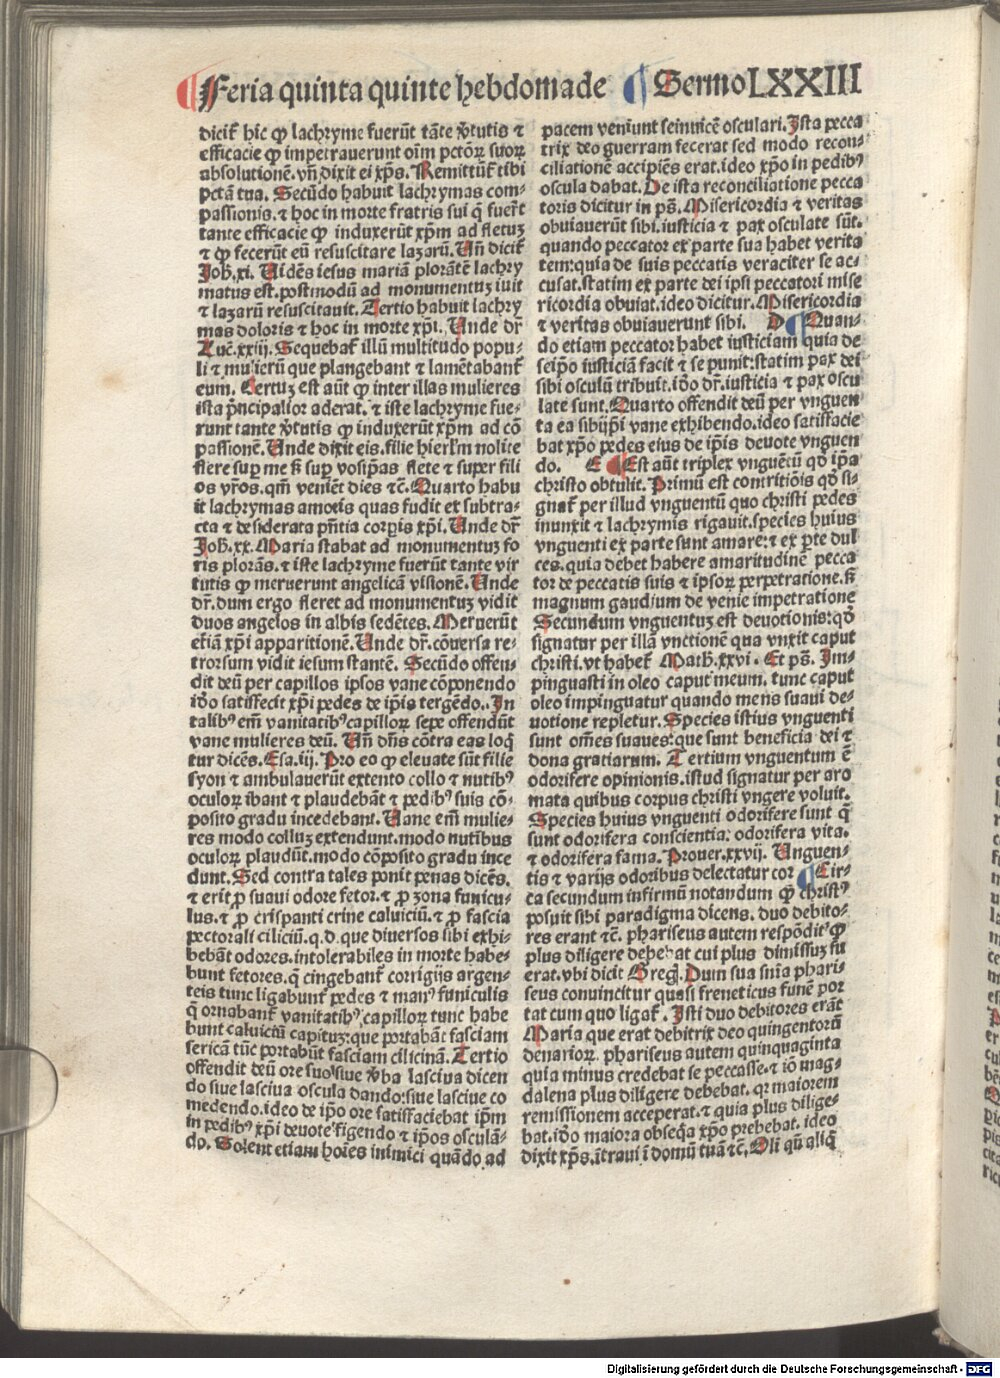 Feria quinta quinte hebdomade Sermo LXXIII
dicit᷑ hic ꝙ lachryme fuerūt tāte v̓tutis ⁊
efficacie ꝙ impetrauerunt oīm pctōꝝ suoꝝ
absolutionē. vn̄ dixit ei xp̄s. Remittūt᷑ tibi
pctā tua. Secūdo habuit lachrymas com-
passionis. ⁊ hoc in morte fratris sui q̄ fuer̄t
tante efficacie ꝙ induxerūt xp̄m ad fletuȝ
⁊ ꝙ fecerūt eū resuscitare lazarū. Vn̄ dicit᷑
Joh̄. xi. Vidēs iesus mariā plorātē lachry
matus est. postmodū ad monumentuȝ iuit
⁊ lazarū resuscitauit. Tertio habuit lachry
mas doloris ⁊ hoc in morte xp̄i. Unde dr̄
Luc̄. xxiij. Sequebat᷑ illū multitudo popu-
li ⁊ mulierū que plangebant ⁊ lamētabant᷑
eum. Certuȝ est aūt ꝙ inter illas mulieres
ista p̄ncipalior aderat. ⁊ iste lachryme fue-
runt tante v̓tutis ꝙ induxerūt xp̄m ad cō
passionē. Unde dixit eis. filie hierl'm nolite
flere suꝑ me sꝫ suꝑ vosip̄as flete ⁊ super fili
os vr̄os. qm̄ veniēt dies ⁊c̄. Quarto habu
it lachrymas amoris quas fudit ex subtra-
cta ⁊ desiderata pn̄tia corꝑis xp̄i. Unde dr̄
Joh̄. xx. Maria stabat ad monumentuȝ fo
ris plorās. ⁊ iste lachryme fuerūt tante vir
tutis ꝙ meruerunt angelicā visionē. Unde
dr̄. dum ergo fleret ad monumentuȝ vidit
duos angelos in albis sedētes. Meruerūt
etiā xp̄i apparitionē. Unde dr̄. cōuersa re-
trorsum vidit iesum stantē. Secūdo offen-
dit deū per capillos ipsos vane cōponendo
iđo satisfecit xp̄i pedes de ip̄is tergēdo. In
talibꝰ em̄ vanitatibꝰ capilloꝝ sepe offendūt
vane mulieres deū. Vn̄ dn̄s cōtra eas loq̄
tur dicēs. Esa. iij. Pro eo ꝙ eleuate sūt filie
syon ⁊ ambulauerūt extento collo ⁊ nutibꝰ
oculoꝝ ibant ⁊ plaudebāt ⁊ pedibꝰ suis cō-
posito gradu incedebant. Uane em̄ mulie-
res modo colluȝ extendunt. modo nutibus
oculoꝝ plaudūt. modo cōposito gradu ince
dunt. Sed contra tales ponit penas dicēs.
⁊ erit ꝓ suaui odore fetor. ⁊ ꝓ zona funicu-
lus. ⁊ ꝓ crispanti crine caluiciū. ⁊ ꝓ fascia
pectorali ciliciū. q. d. que diuersos sibi exhi-
bebāt odores. intolerabiles in morte habe-
bunt fetores. q̄ cingebant᷑ corrigijs argen-
teis tunc ligabunt᷑ pedes ⁊ manꝰ funiculis
q̄ ornabant᷑ vanitatibꝰ capilloꝝ tunc habe
bunt caluiciū capituȝ: que portabāt fasciam
sericā tūc portabūt fasciam cilicinā. Tertio
offendit deū ore suo siue v̓ba lasciua dicen
do siue lasciua oscula dando: siue lasciue co
medendo. ideo de ip̄o ore satisfaciebat ip̄m
in pedibꝰ xp̄i deuote figendo ⁊ ip̄os osculā-
do. Solent etiam hoīes inimici quādo ad
pacem veniunt seinuicē osculari. Ista pecca
trix deo guerram fecerat sed modo recon-
ciliationē accipiēs erat. ideo xp̄o in pedibꝰ
oscula dabat. De ista reconciliatione pecca
toris dicitur in ps̄. Misericordia ⁊ veritas
obuiauerūt sibi. iusticia ⁊ pax osculate sūt.
quando peccator ex parte sua habet verita
tem: quia de suis peccatis veraciter se ac-
cusat. statim ex parte dei ipsi peccatori mise
ricordia obuiat. ideo dicitur. Misericordia
⁊ veritas obuiauerunt sibi. D Quan-
do etiam peccator habet iusticiam quia de
seip̄o iusticiā facit ⁊ se punit: statim pax dei
sibi osculū tribuit. iđo dr̄. iusticia ⁊ pax oscu
late sunt. Quarto offendit deū per vnguen
ta ea sibijp̄i vane exhibendo. ideo satisfacie
bat xp̄o pedes eius de ip̄is deuote vnguen
do. E Est aūt triplex vnguētū qđ ip̄a
christo obtulit. Primū est contritiōis qđ si-
gnat᷑ per illud vnguentū quo christi pedes
inunxit ⁊ lachrymis rigauit. species huius
vnguenti ex parte sunt amare: ⁊ ex ꝑte dul
ces. quia debet habere amaritudinē pecca
tor de peccatis suis ⁊ ipsoꝝ perpetratione. sꝫ
magnum gaudium de venie impetratione
Secundum vnguentuȝ est deuotionis: qđ
signatur per illā vnctionē qua vnxit caput
christi. vt habet᷑ Math̄. xxvi. Et ps̄. Im-
pinguasti in oleo caput meum. tunc caput
oleo impinguatur quando mens suaui de-
uotione repletur. Species istius vnguenti
sunt om̄es suaues: que sunt beneficia dei ⁊
dona gratiarum. Tertium vnguentum ē
odorifere opinionis. istud signatur per aro
mata quibus corpus christi vngere voluit.
Species huius vnguenti odorifere sunt q̄
sunt odorifera conscientia: odorifera vita.
⁊ odorifera fama. Prouer. xxvij. Unguen-
tis ⁊ varijs odoribus delectatur cor Cir-
ca secundum infirmū notandum ꝙ christꝰ
posuit sibi paradigma dicens. duo debito-
res erant ⁊c̄. phariseus autem respōdit ꝙ
plus diligere debebat cui plus dimissuȝ fu
erat. vbi dicit Greḡ. Dum sua sn̄ia phari-
seus conuincitur quasi freneticus funē por
tat cum quo ligat᷑. Isti duo debitores erāt
Maria que erat debitrix deo quingentorū
denarioꝝ. phariseus autem quinquaginta
quia minus credebat se peccasse. ⁊ iō mag-
dalena plus diligere debebat. qꝛ maiorem
remissionem acceperat. ⁊ quia plus dilige-
bat. iđo maiora obseq̄a xp̄o prebebat. ideo
dixit xp̄s. ītraui ī domū tuā ⁊c̄. Oli qn̄ aliq̄
Digitalisierung gefördert durch die Deutsche Forschungsgemeinschaft - DFG